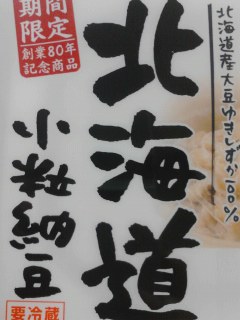 北海道産大豆ゆきしずか100%
北海道
小粒納豆
期間
限定
創業80年
記念商品
要冷蔵